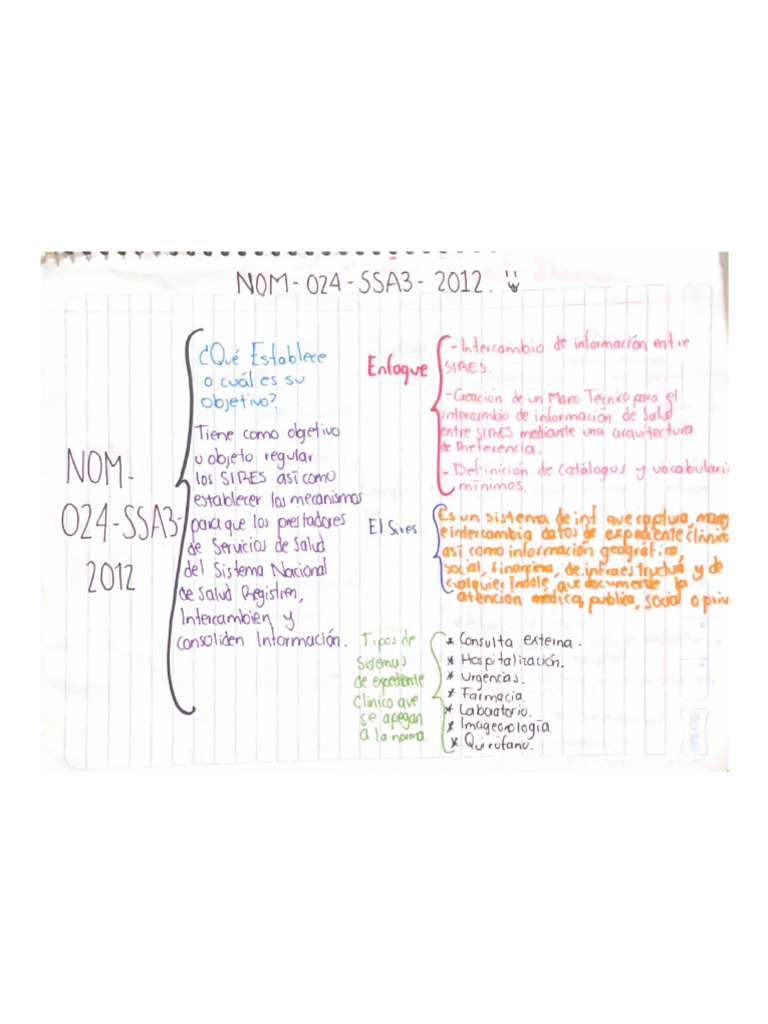 NOM-024-SSA3-2012.
NOM-
024-SSA3-
2012
¿Qué Establece
o cuál es su
objetivo?
Tiene como objetivo
u objeto regular
los SIRES así como
establecer los mecanismos
para que los prestadores
de Servicios de Salud
del Sistema Nacional
de Salud Registren,
Intercambien y
consoliden Información.
Enfoque
- Intercambio de información entre
SIRES.
- Creación de un Marco Técnico para el
intercambio de información de Salud
entre SIRES mediante una arquitectura
de Preferencia.
- Definición de catálogos y vocabulari
mínimos.
El Sires
Es un sistema de inf que captura,
e intercambia datos de expediente clínic
así como información geográfica,
social, financiera, de infraestructura y de
cualquier Indole, que documente la
atención médica, publica, social o priv
Tipos de
Sistemas
de expediente
Clínico que
se apegan
a la norma.
* Consulta externa.
* Hospitalización.
* Urgencias.
* Farmacia
* Laboratorio.
* Imagenología
* Quirófano.
Scribe